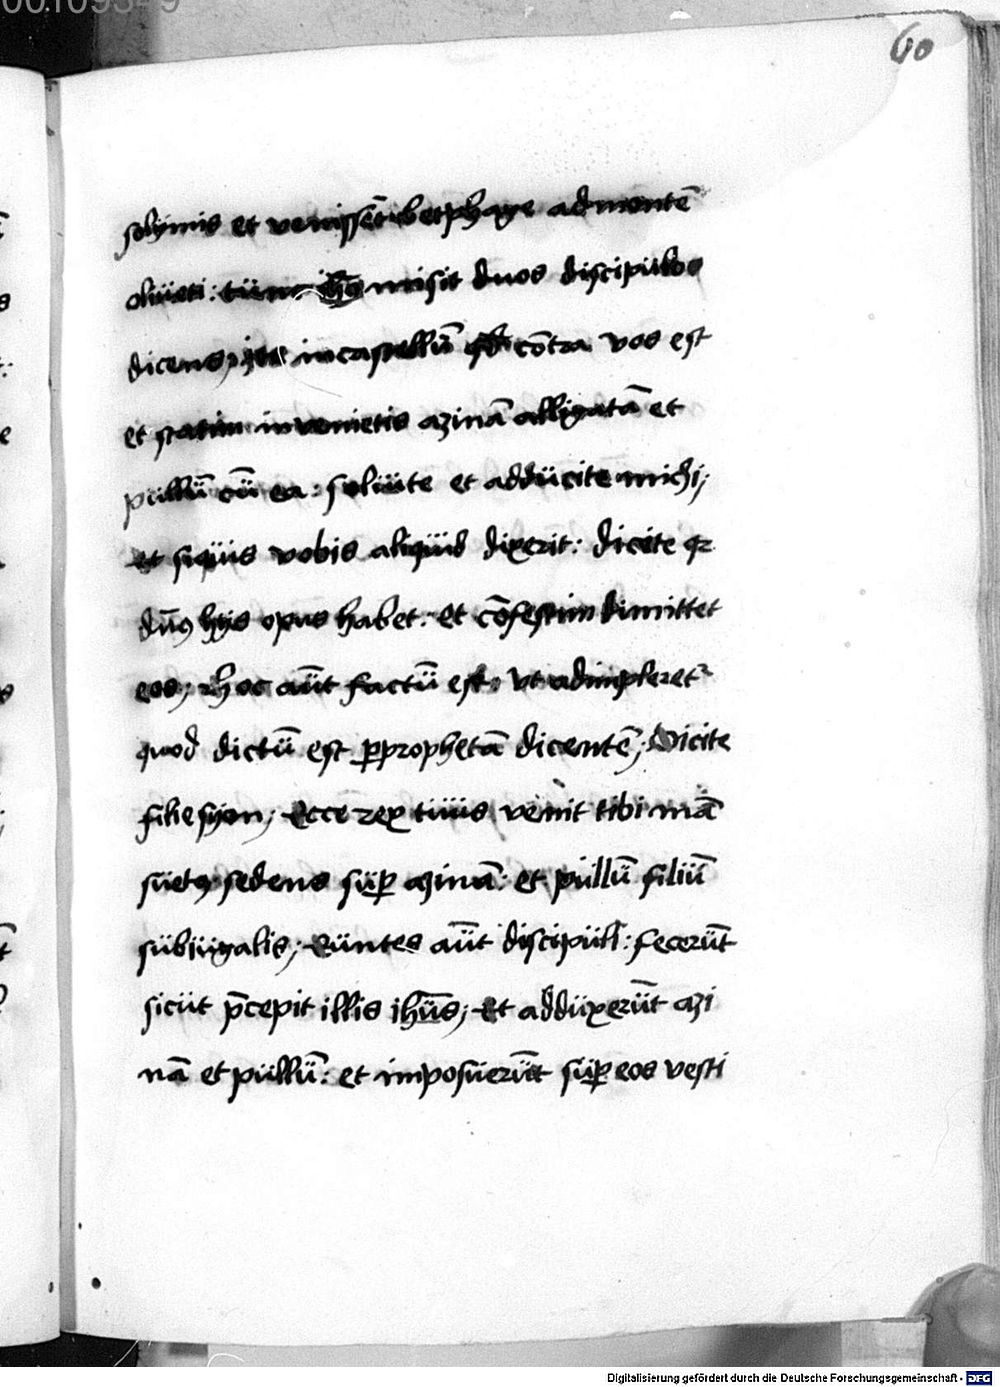 60
solymis et venissēt betphage ad montē
oliueti: tunc ihs misit duos discipulos
dicens; ite in castellū qd cōtra vos est
et statim invenietis azinā alligatā et
pullū cū ea: soluite et adducite michi;
et siquis vobis aliquid dixerit: dicite qr
dn̄s hijs opus habet: et cōfestim dimittet
eos; hoc aūt factū est: vt adimpleret
quod dictū est ꝑ prophetā dicentē; Dicite
filie syon; Ecce rex tuus venit tibi mā
suetꝰ sedens suꝑ azinā: et pullū filiū
subiugalis; Euntes aūt discipuli: fecerūt
sicut p̄cepit illis ihūs; Et adduxerūt azi
nā et pullū: et imposuerūt suꝑ eos vesti
Digitalisierung gefördert durch die Deutsche Forschungsgemeinschaft - DFG